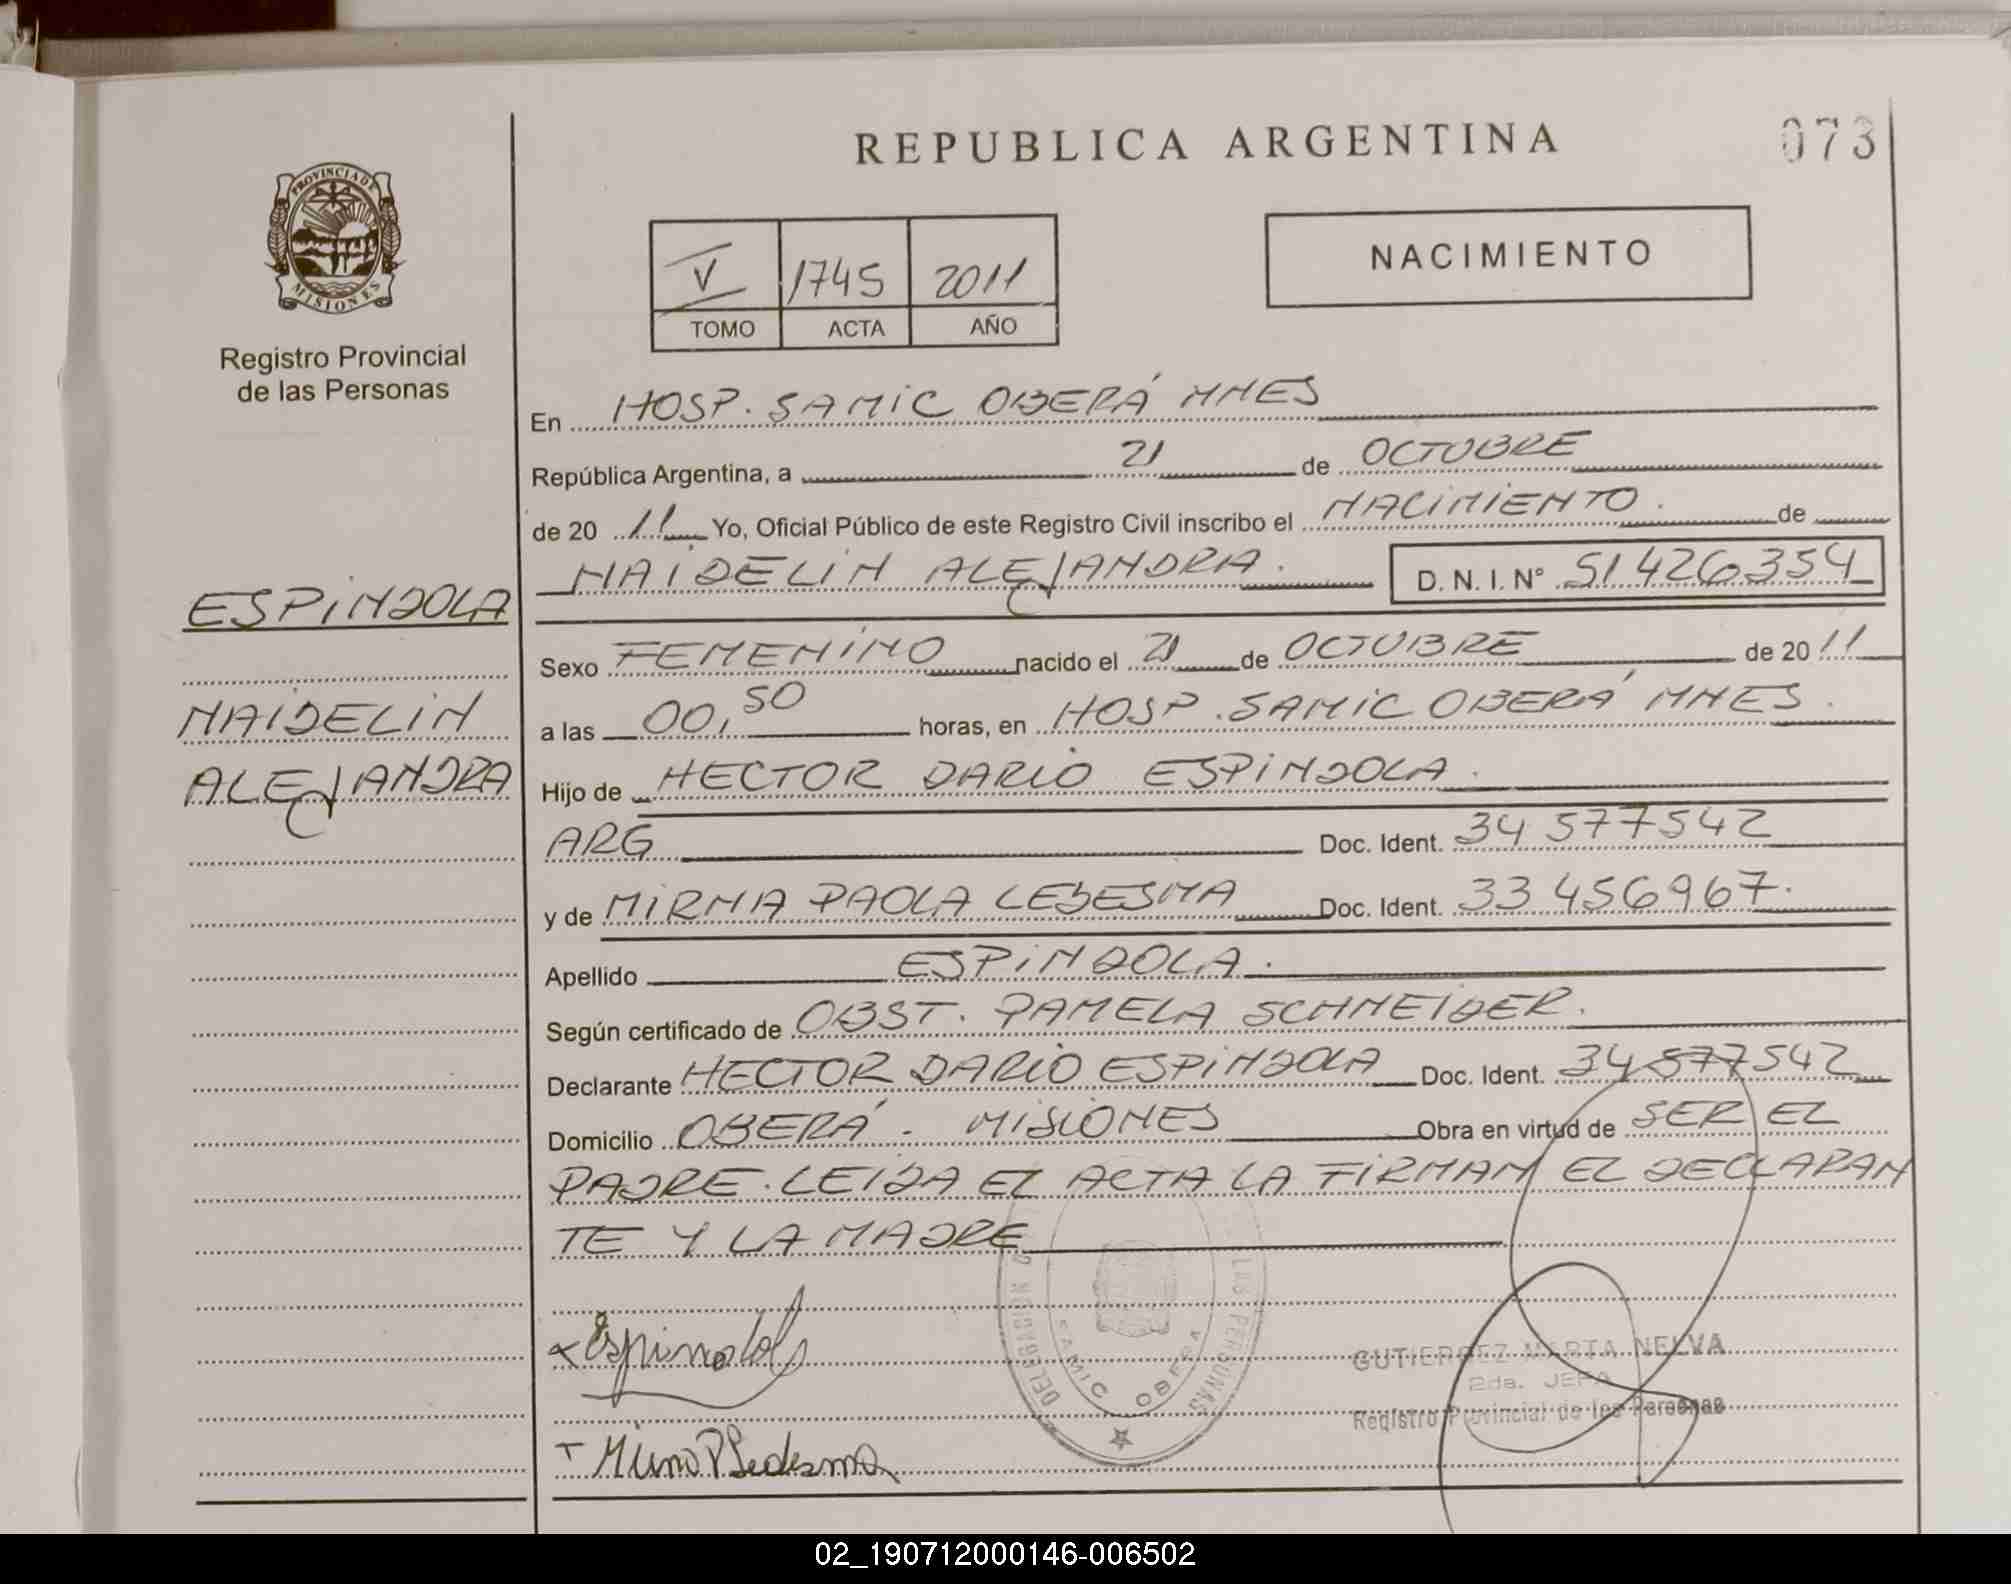 REPUBLICA ARGENTINA
073
PROVINCIA DE
MISIONES
Registro Provincial
de las Personas
V 1745 2011
TOMO ACTA AÑO
NACIMIENTO
En HOSP. SAMIC OBERÁ MNES
República Argentina, a 21 de OCTUBRE
de 20 11 Yo, Oficial Público de este Registro Civil inscribo el NACIMIENTO. de
NAIDELIN ALEJANDRA. D. N. I. N° 51426354
ESPINDOLA
NAIDELIN
ALEJANDRA
Sexo FEMENINO nacido el 21 de OCTUBRE de 20 11
a las 00,50 horas, en HOSP. SAMIC OBERÁ MNES.
Hijo de HECTOR DARIO ESPINDOLA.
ARG Doc. Ident. 34 577542
y de MIRNA PAOLA LEDESMA Doc. Ident. 33 456967.
Apellido ESPINDOLA.
Según certificado de OBST. PAMELA SCHNEIDER.
Declarante HECTOR DARIO ESPINDOLA Doc. Ident. 34 577542
Domicilio OBERÁ. MISIONES Obra en virtud de SER EL
PADRE. LEIDA EL ACTA LA FIRMAN EL DECLARAN
TE Y LA MADRE
Espindola
Mirna P Ledesma
DELEGACION
LAS PERSONAS
SAMIC OBERA
GUTIERREZ MARTA NELVA
2da. JEFA
Registro Provincial de las Personas
02_190712000146-006502